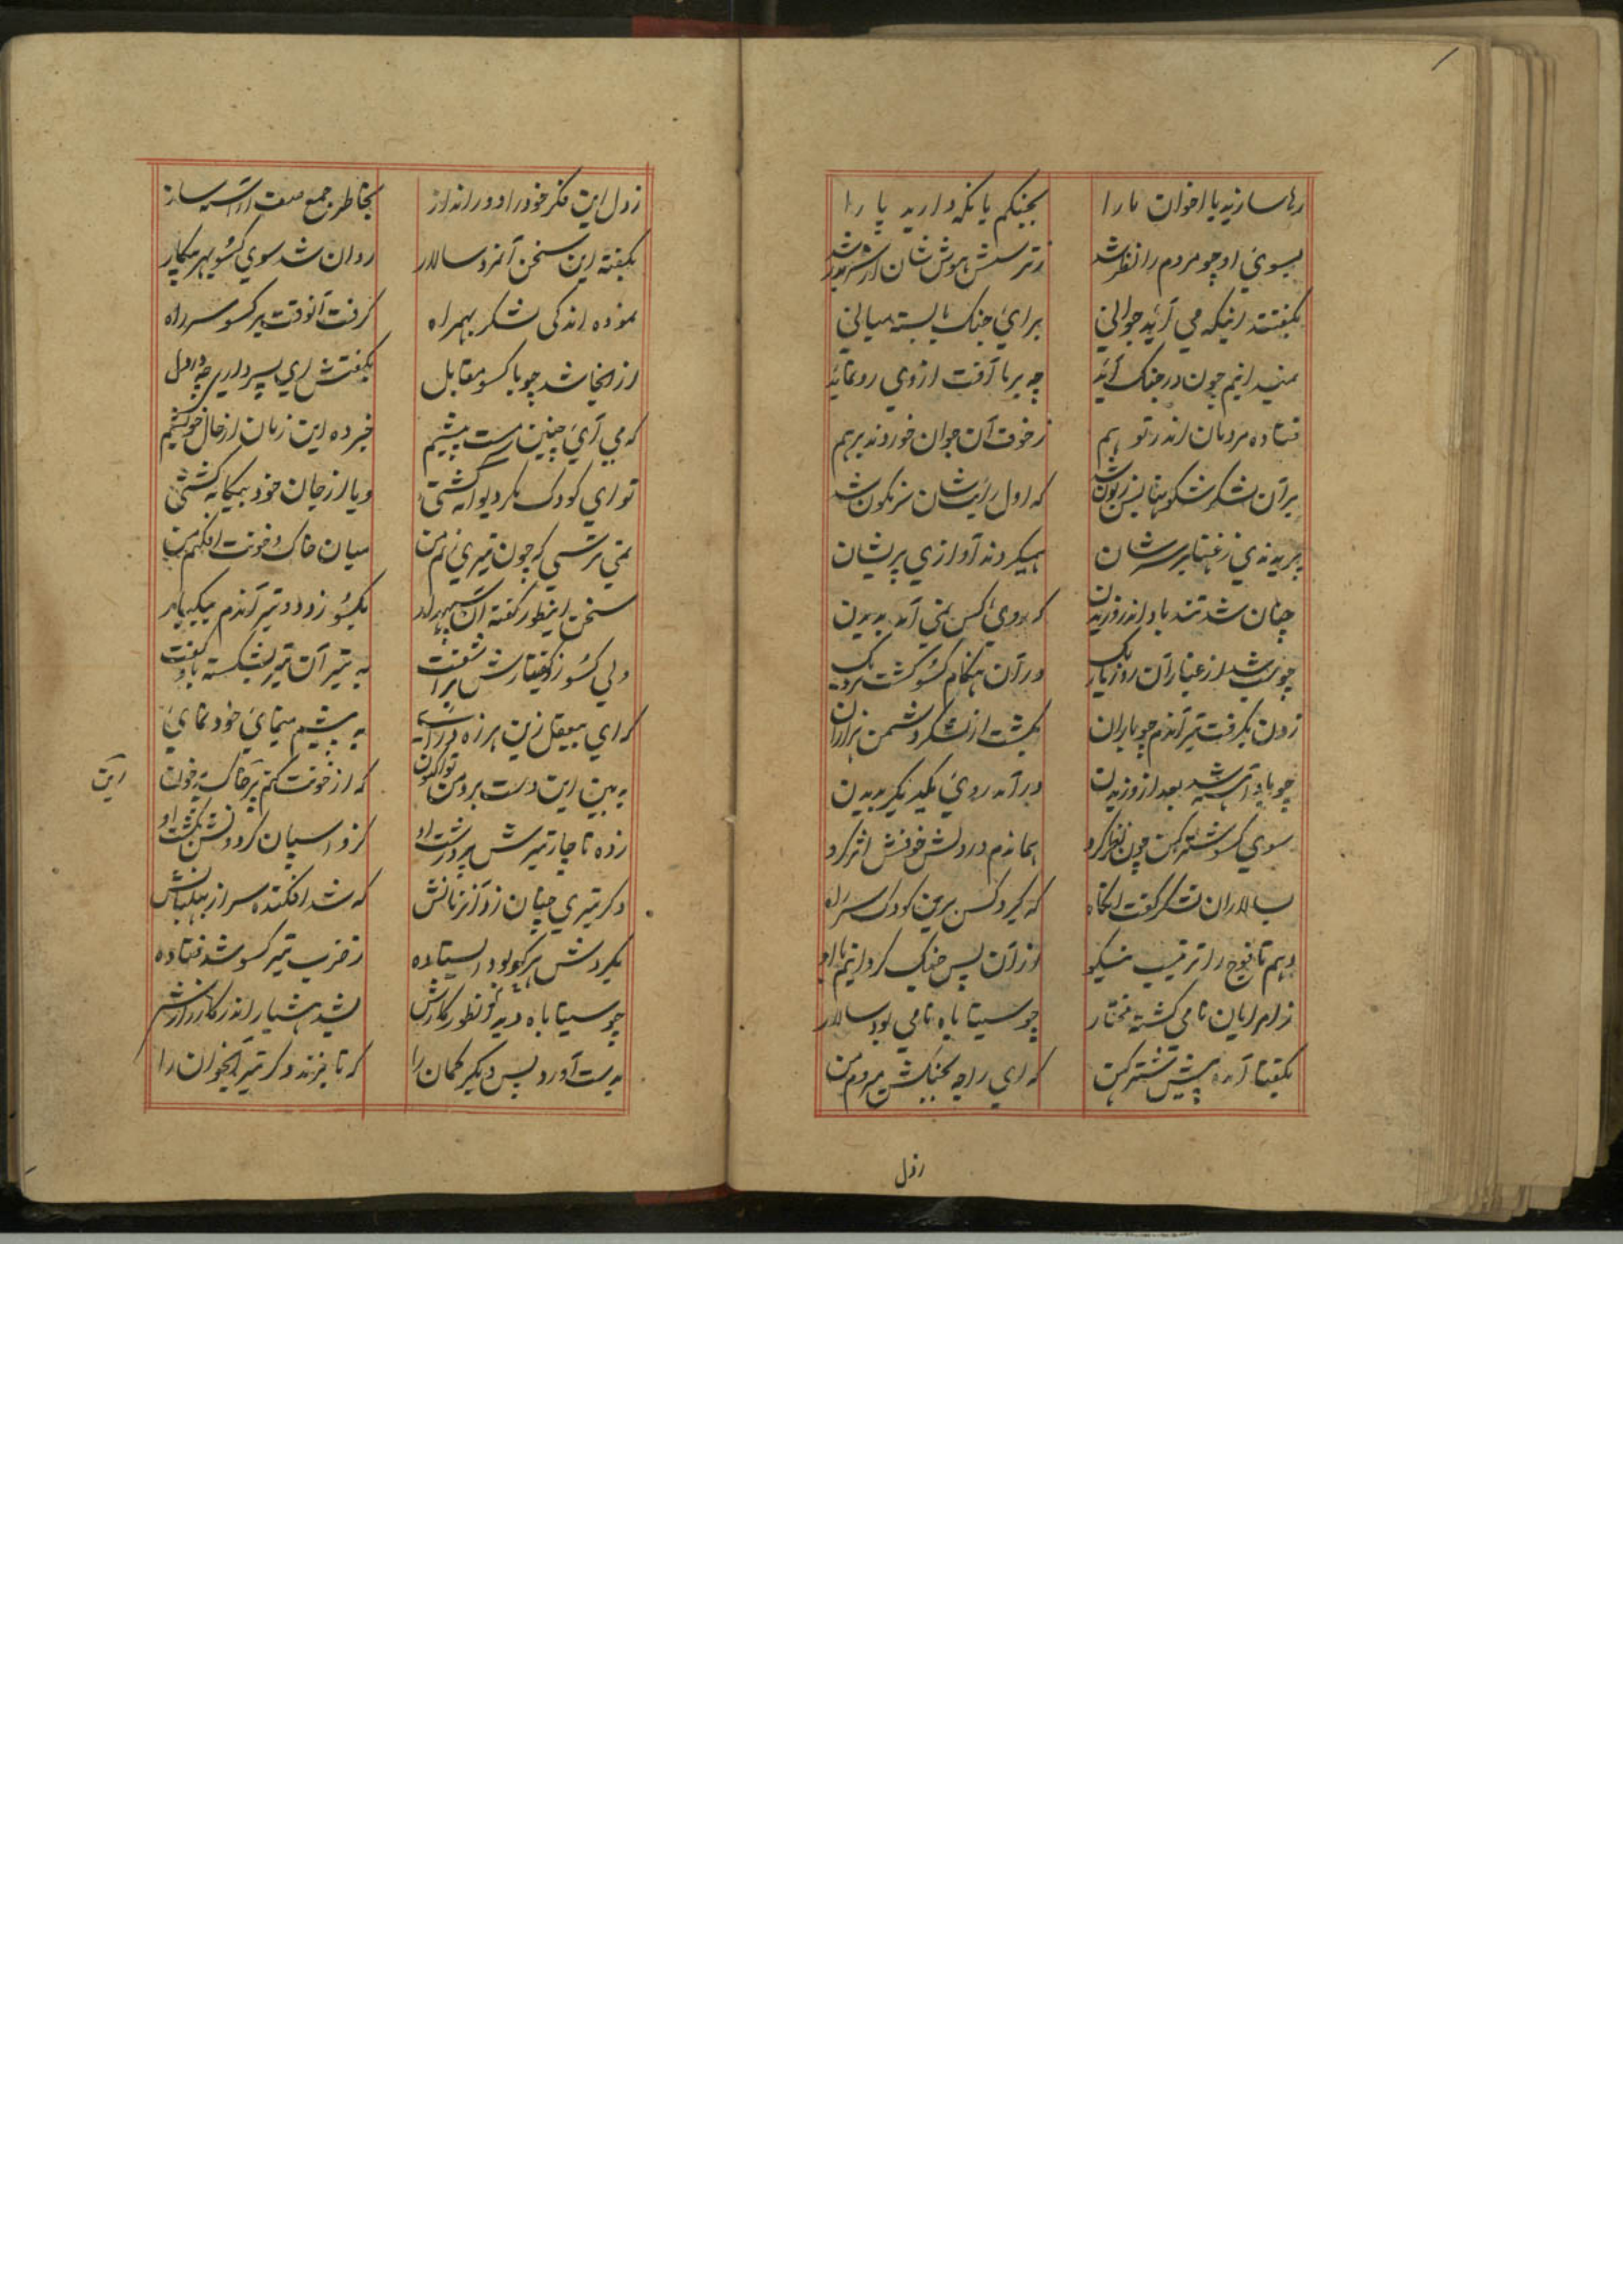 رها سازید با اخوان ما را
بجنگم یا نگهدارید پا را
بسوی او چو مردم را نظر شد
ز ترسش هوش شان از سر بدر شد
بگفتند اینکه می آید جوانی
برای جنگ ما بسته میانی
نمیدانیم چون در جنگ آید
چه بر ما آفت از وی رو نماید
فتاده مردمان اندر تو هم
ز خوف آن جوان خوردند بر هم
بر آن لشکر شکو
که اول رایت شان سرنگون شد
پریدندی زغنها بر سر شان
همیکردند آوازی پریشان
چنان شد تند باد اندر وزیدن
که روی کس نمی آمد بدیدن
چو شب شد از غبار آن روز تاریک
در آن هنگام کسو گشت نزدیک
ز دن بگرفت تیر آندم چو باران
بکشت از لشکر دشمن هزاران
چو باد آهسته شد بعد از وزیدن
در آمد روی یکدیگر بدیدن
سوی کسو شترکن چون نظر کرد
هماندم در دلش خوفش اثر کرد
بسالاران لشکر گفت آنگاه
که گیرد کس برین کودک سر راه
دهم تا فوج را ترتیب نیکو
از آن پس جنگ گردانیم با او
ز امرایان نامی گشته مختار
چو سیتا باه نامی بود سالار
بگفتا آمده پیش شترکن
که ای راجه بجنگش میروم من
زدل
ز دل این فکر خود را دور انداز
بخاطر جمع صف آراسته ساز
بگفته این سخن آنمرد سالار
روان شد سوی کسو بهر پیکار
نموده اندکی لشکر بهمراه
گرفت آنوقت بر کسو سر راه
از اینجا شد چو با کسو مقابل
بگفتش ای پسر داری چه در دل
که می آی چنین مست پیشیم
خبر ده این زمان از حال خویشیم
تو ای کودک مگر دیوانه گشتی
و یا از جان خود بیگانه گشتی
نمی ترسی که چون تیری زنم من
میان خاک و خونت افکنم من
سخن اینطور گفته آن سپهدار
بکسو زود دو تیر آندم بیکبار
ولی کسو ز گفتارش
به تیر آن تیر بشکسته باو گفت
که ای بیعقل زین هرزه درائی
به پیشم مینمای خود نمای
به بین این دست برد من تو اکنون
که از خونت کنم پر خاک پر خون
این
زده ناچار تیرش
کزو اسپان گردونش بکشت او
دگر تیری چنان زد آنزمانش
که شد افکنده سر از پیلبانش
بگردش هر که بود ایستاده
ز ضرب تیر کسو شد فتاده
چو سیتا باه دید آنطور کارش
بشد هشیار اندر کارزارش
بدست آورد پس دیگر کمان را
که تا بزند دگر تیر آنجوان را